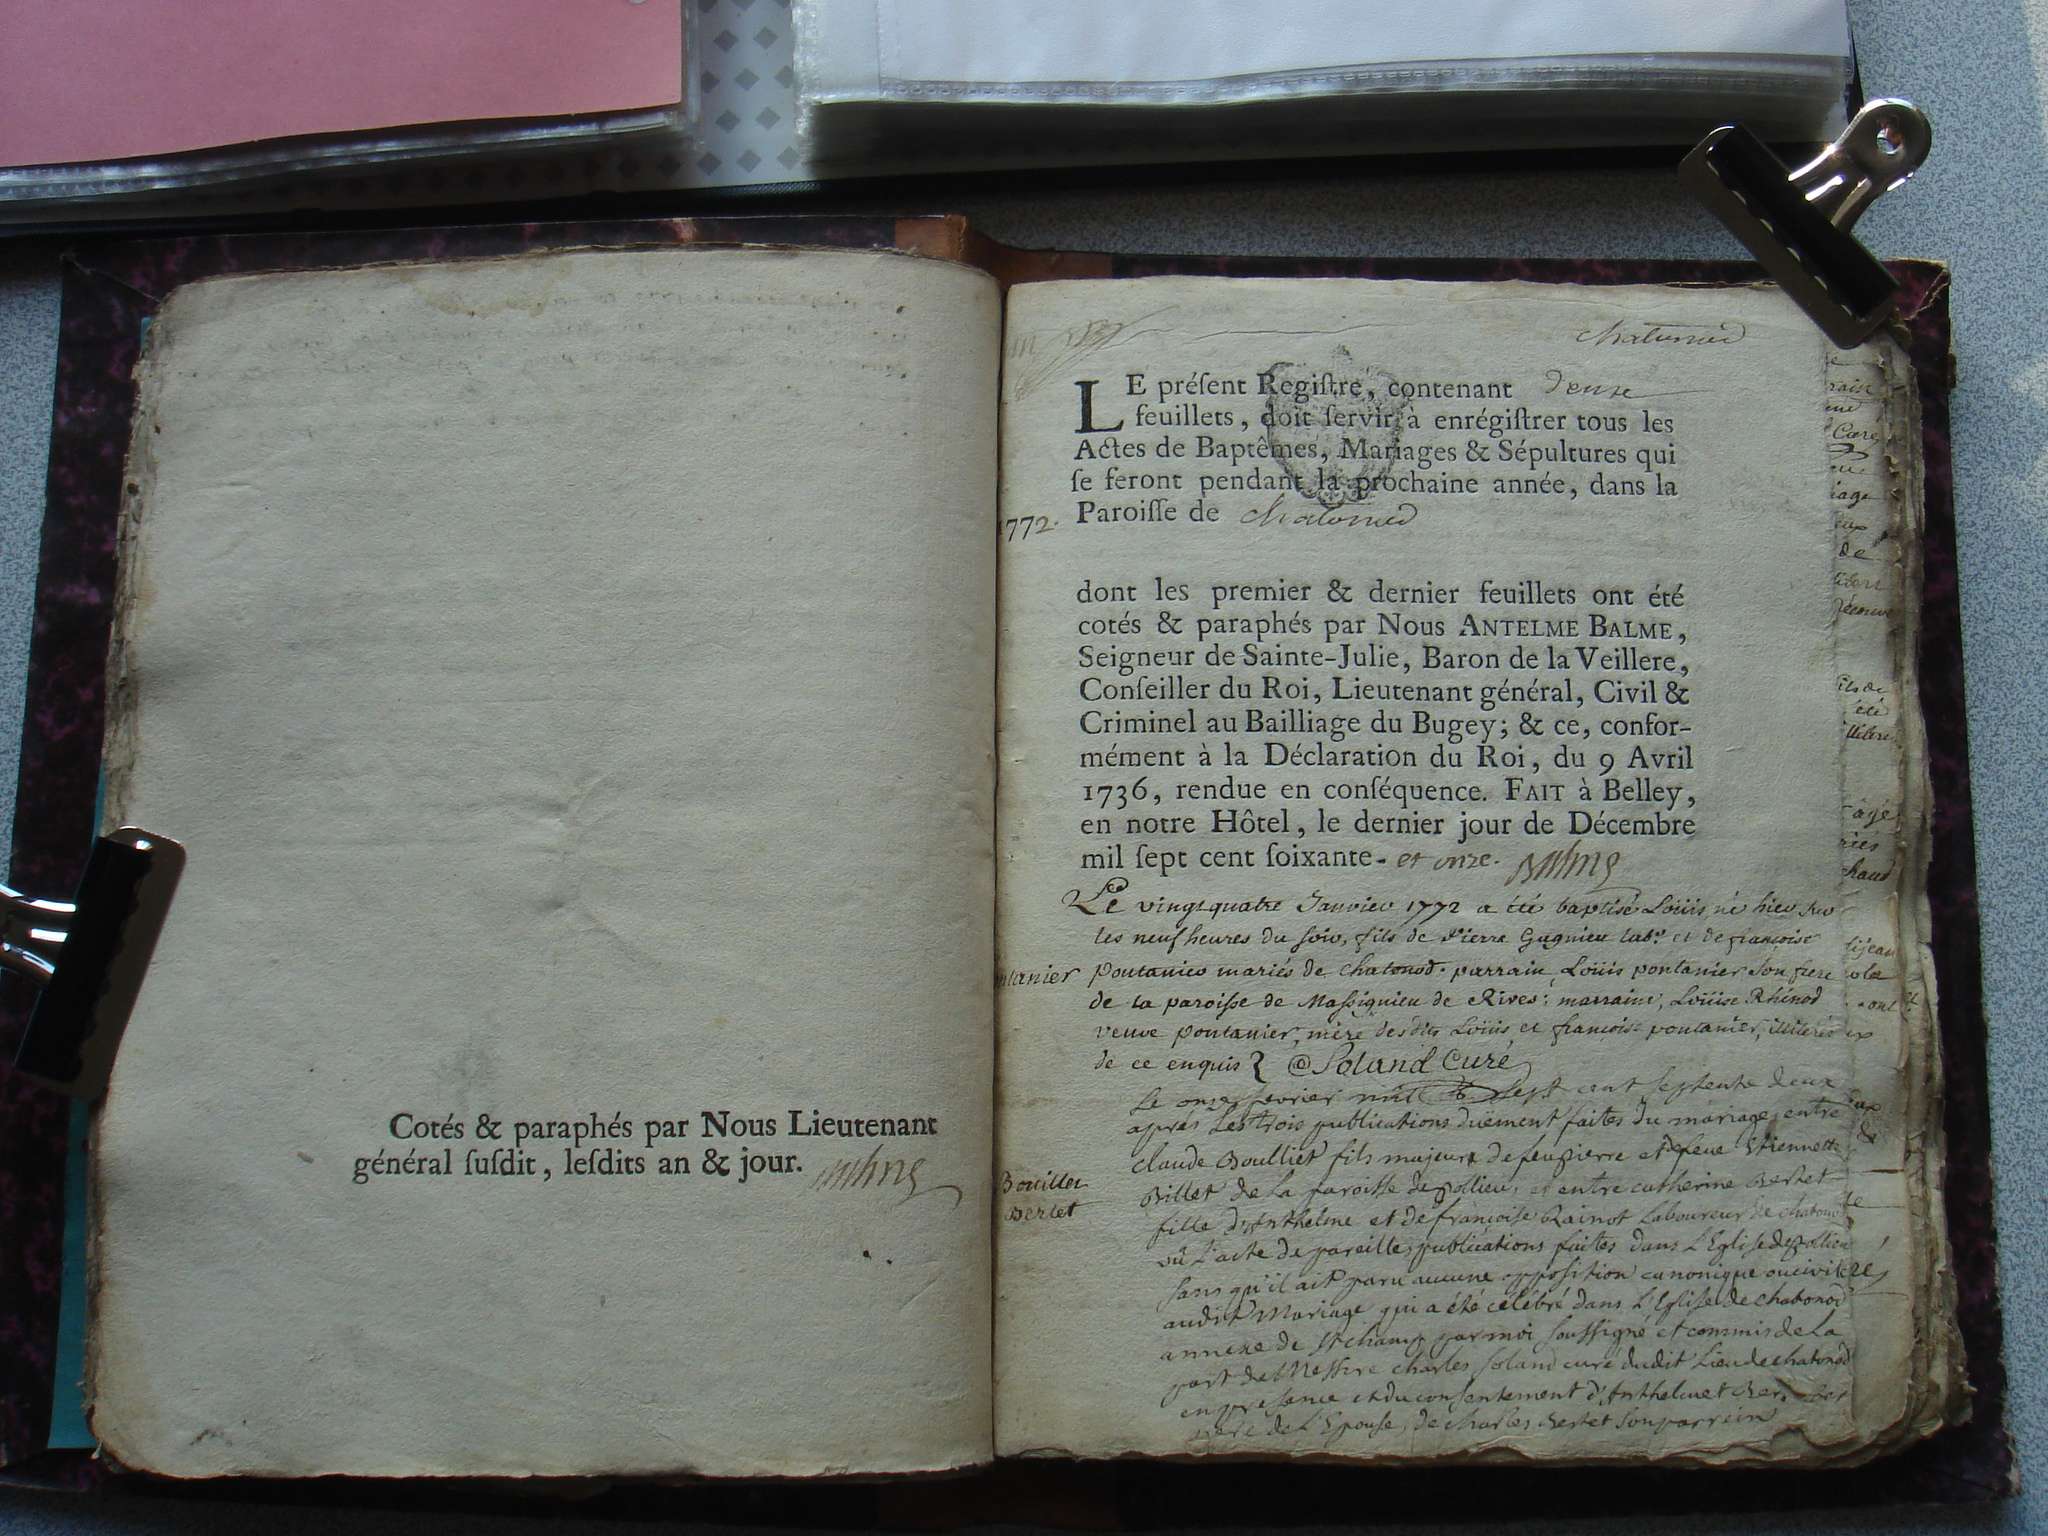 Cotés & paraphés par Nous Lieutenant
général ſuſdit, leſdits an & jour.
Chatonod
LE préſent Regiſtre, contenant deux
feuillets, doit ſervir à enrégiſtrer tous les
Actes de Baptêmes, Mariages & Sépultures qui
ſe feront pendant la prochaine année, dans la
1772. Paroiſſe de Chatonod
dont les premier & dernier feuillets ont été
cotés & paraphés par Nous ANTELME BALME,
Seigneur de Sainte-Julie, Baron de la Veillere,
Conſeiller du Roi, Lieutenant général, Civil &
Criminel au Bailliage du Bugey; & ce, confor-
mément à la Déclaration du Roi, du 9 Avril
1736, rendue en conſéquence. FAIT à Belley,
en notre Hôtel, le dernier jour de Décembre
mil ſept cent ſoixante- et onze. Balme
Le vingt quatre Janvier 1772 a été baptisé Loüis né hier sur
les neuf heures du soir, fils de Pierre Gagnieu labr. et de françoise
pontanier mariés de Chatonod. parrain Loüis pontanier son frere
de la paroisse de Massignieu de Rives: marraine, Loüise Rhinod
veuve pontanier, mère desdits Loüis et françoise pontanier, illiterés
de ce enquis Soland Curé
Le onze fevrier mil sept cent septente deux
après Les trois publications düement faites du mariage entre
Claude Boulliet fils majeur de feu pierre et de feue Etiennette
Bouillet
Bertet
Billet de La paroisse de pollieu, et entre catherine Bertet
fille d'Anthelme et de françoise Rainot Laboureur de chatonod
vû L'acte de pareilles publications faites dans L'Eglise de pollieu
sans qu'il ait paru aucune opposition canonique ou civile
audit Mariage qui a été célébré dans L'Eglise de chatonod
annexe de st champ par moi soussigné et commis de La
part de Messire charles soland curé dudit Lieu de chatonod
en presence et du consentement d'Anthelme
père de L'Epouse, de charles Bertet son parrein